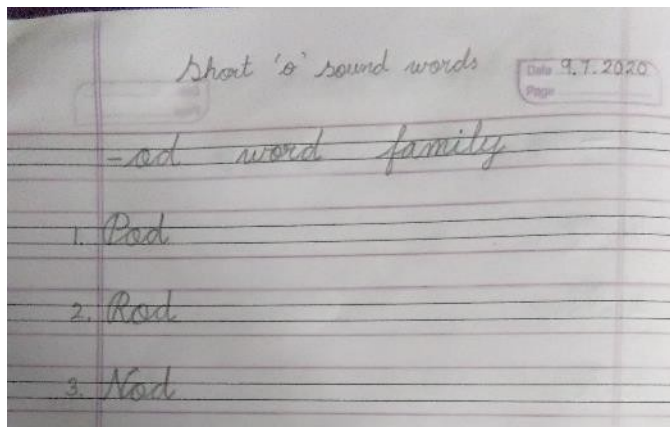 Short 'o' sound words
Date 9.7.2020
Page
-od word family
1. Pod
2. Rod
3. Nod